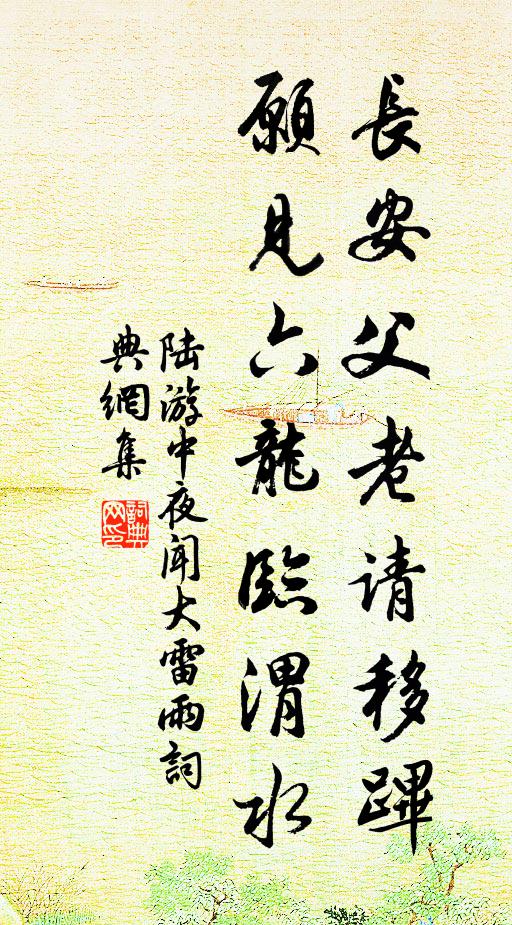 長安父老请移蹕
願見六龍臨渭水
陆游中夜闻大雷雨詞
典網集
詞典
网印